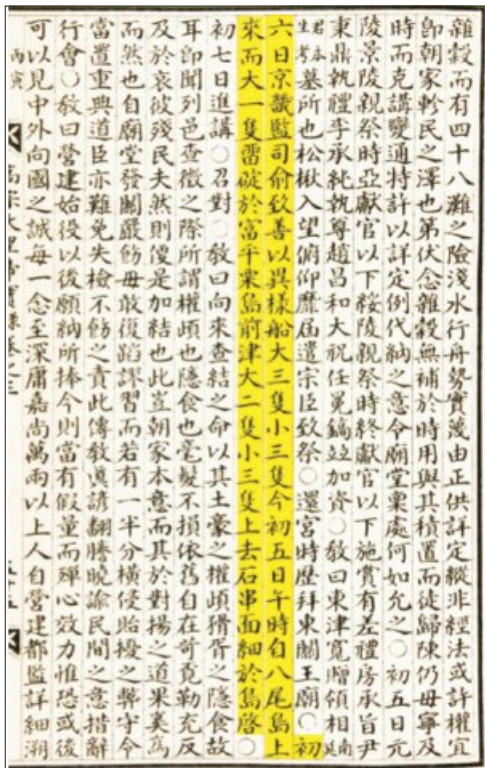 雜穀而有四十八灘之險淺水行舟勢實蔑由正供詳定縱非經法或許權宜
卽朝家軫民之澤也第伏念雜穀無補於時用與其積置而徒歸陳仍毋寧及
時而克講變通特許以詳定例代納之意令廟堂稟處何如允之○初五日元
陵景陵親祭時亞獻官以下綏陵親祭時終獻官以下施賞有差禮房承旨尹
秉鼎執禮李承純執尊趙昌和大祝任冕鎬竝加資○敎曰東津寬贈領相
君本生考墓所也松楸入望俯仰靡屆遣宗臣致祭○還宮時歷拜東關王廟○初
六日京畿監司兪致善以異樣船大三隻小三隻今初五日午時自八尾島上
來而大一隻雷碇於富平栗島前津大二隻小三隻上去石串面細於島啓○
初七日進講○召對○敎曰向來查結之命以其土豪之權頉猾胥之隱食故
耳卽聞列邑查徵之際所謂權頉也隱食也毫髮不損依舊自在苛覓勒充反
及於哀彼殘民夫然則便是加結也此豈朝家本意而其於對揚之道果奚爲
而然也自廟堂發關嚴飭毋敢復蹈謬習而若有一半分橫侵貽擾之弊守令
當置重典道臣亦難免失檢不飭之責此傳敎眞諺翻謄曉諭民間之意措辭
行會○敎曰營建始役以後願納所捧今則當有假量而殫心效力惟恐或後
可以見中外向國之誠每一念至深庸嘉尙萬兩以上人自營建都監詳細溯
丙寅